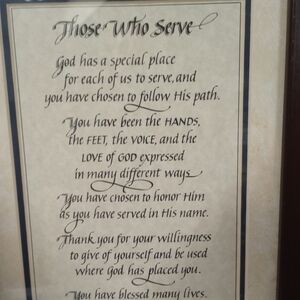 Those Who Serve
God has a special place
for each of us to serve, and
you have chosen to follow His path.
You have been the HANDS,
the FEET, the VOICE, and the
LOVE of GOD expressed
in many different ways.
You have chosen to honor Him
as you have served in His name.
Thank you for your willingness
to give of yourself and be used
where God has placed you.
You have blessed many lives.